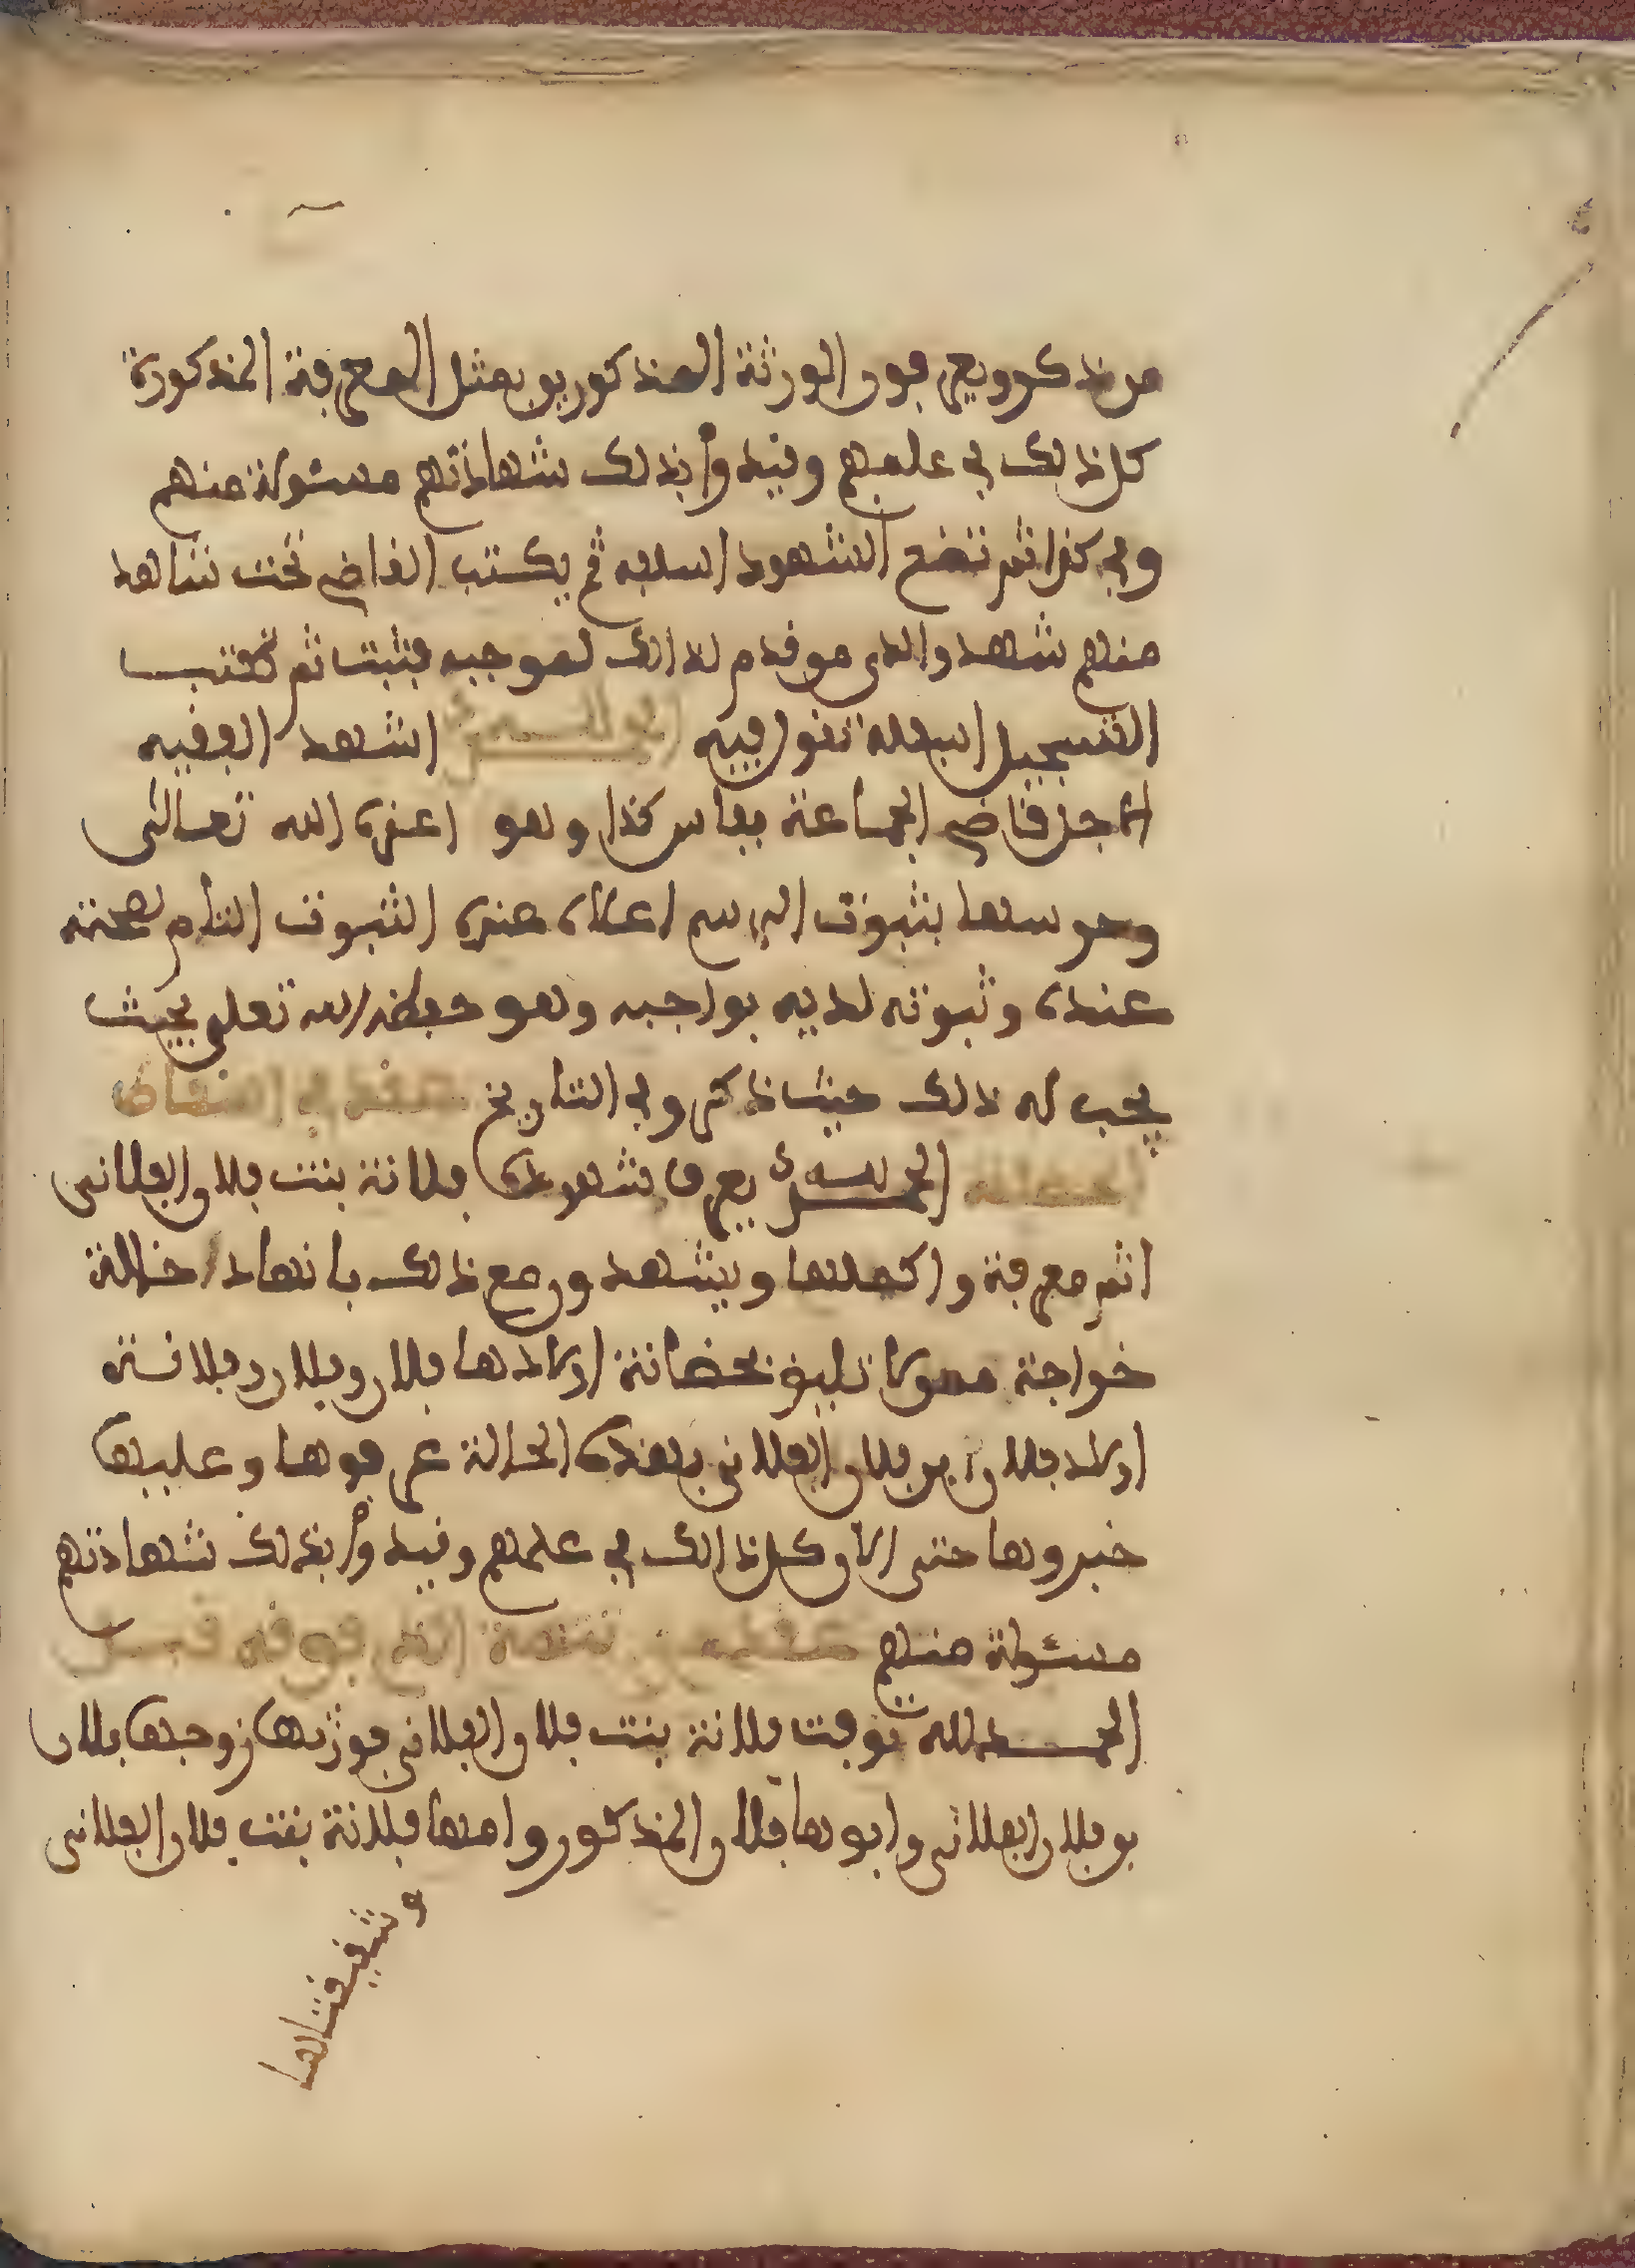 من ذكر ويعرفون الورثة المذكورين بمثل المعرفة المذكورة
كل ذلك في علمهم وقيدوا بذلك شهادتهم مسئولة منهم
وفي كذا ثم تضع الشهود اسفله ثم يكتب القاضي تحت شاهد
منهم شهد والذي من قدم لذالك لموجبه فثبت ثم تكتب
التسجيل اسفله تقول فيه الحمد لله اشهد الفقيه
الاجل قاضي الجماعة بفاس كذا وهو اعزه الله تعالى
وحرسها بثبوت الرسم اعلاه عنده الثبوت التام لصحته
عنده وثبوته لديه بواجبه وهو حفظه الله تعلى بحيث
يجب له ذلك حيث ذكر وفي التاريخ عقد في استحقاق
الحضانة الحمد لله يعرف شهوده فلانة بنت فلان الفلاني
اتم معرفة واكملها ويشهدون مع ذلك بانها دخالة
خراجة ممن لا تليق بحضانة اولادها فلان وفلان وفلانة
اولاد فلان بن فلان الفلاني بهذه الحالة عرفوها وعليها
خبروها حتى الان كل ذالك في علمهم وقيدوا بذلك شهادتهم
مسئولة منهم الذي فوقه
الحمد لله توفت فلانة بنت فلان الفلاني فورثها زوجها فلان
بن فلان الفلاني وابوها فلان المذكور وامها فلانة بنت فلان الفلاني
وشقيقتاها